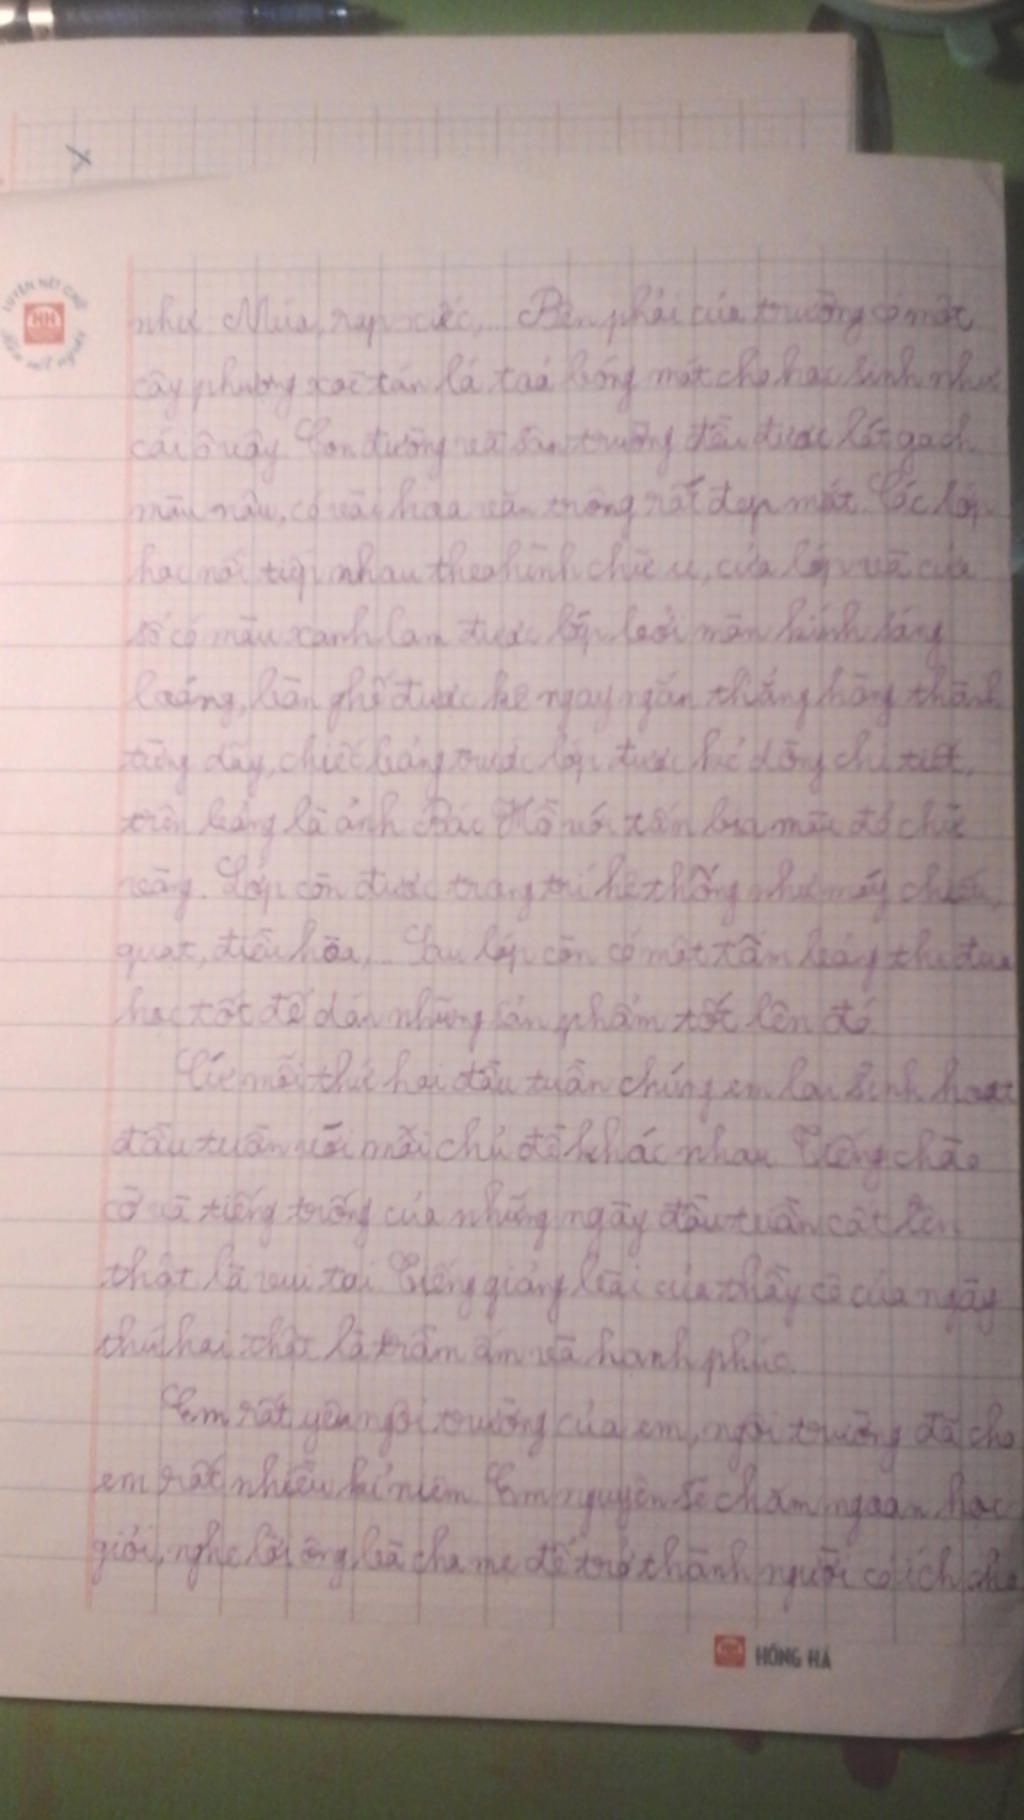 LUYỆN NÉT CHỮ
HH
như Múa, rạp xiếc,... Bên phải của trường có một
cây phượng xoè tán lá toả bóng mát cho học sinh như
cái ô vậy. Con đường và sân trường đều được lát gạch
màu nâu, có vài hoa văn trông rất đẹp mắt. Các lớp
học nối tiếp nhau theo hình chữ u, cửa lớp và cửa
sổ có màu xanh lam được lớp bởi màn kính sáng
loáng, bàn ghế được kê ngay ngắn thẳng hàng thành
từng dãy, chiếc bảng trước lớp được kẻ dòng chi tiết,
trên bảng là ảnh Bác Hồ với tấm bìa màu đỏ chữ
vàng. Lớp còn được trang trí hệ thống như máy chiếu,
quạt, điều hòa,... Sau lớp còn có một tấm bảng thi đua
học tốt để dán những sản phẩm tốt lên đó.
Cứ mỗi thứ hai đầu tuần chúng em lại sinh hoạt
đầu tuần với mỗi chủ đề khác nhau. Tiếng chào
cờ và tiếng trống của những ngày đầu tuần cất lên
thật là vui tai. Tiếng giảng bài của thầy cô của ngày
thứ hai thật là trầm ấm và hạnh phúc.
Em rất yêu ngôi trường của em, ngôi trường đã cho
em rất nhiều kỉ niệm. Em nguyện sẽ chăm ngoan học
giỏi, nghe lời ông bà cha mẹ để trở thành người có ích cho
HỒNG HÀ